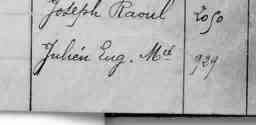 Joseph Raoul 2050
Julien Eug. Mce 929